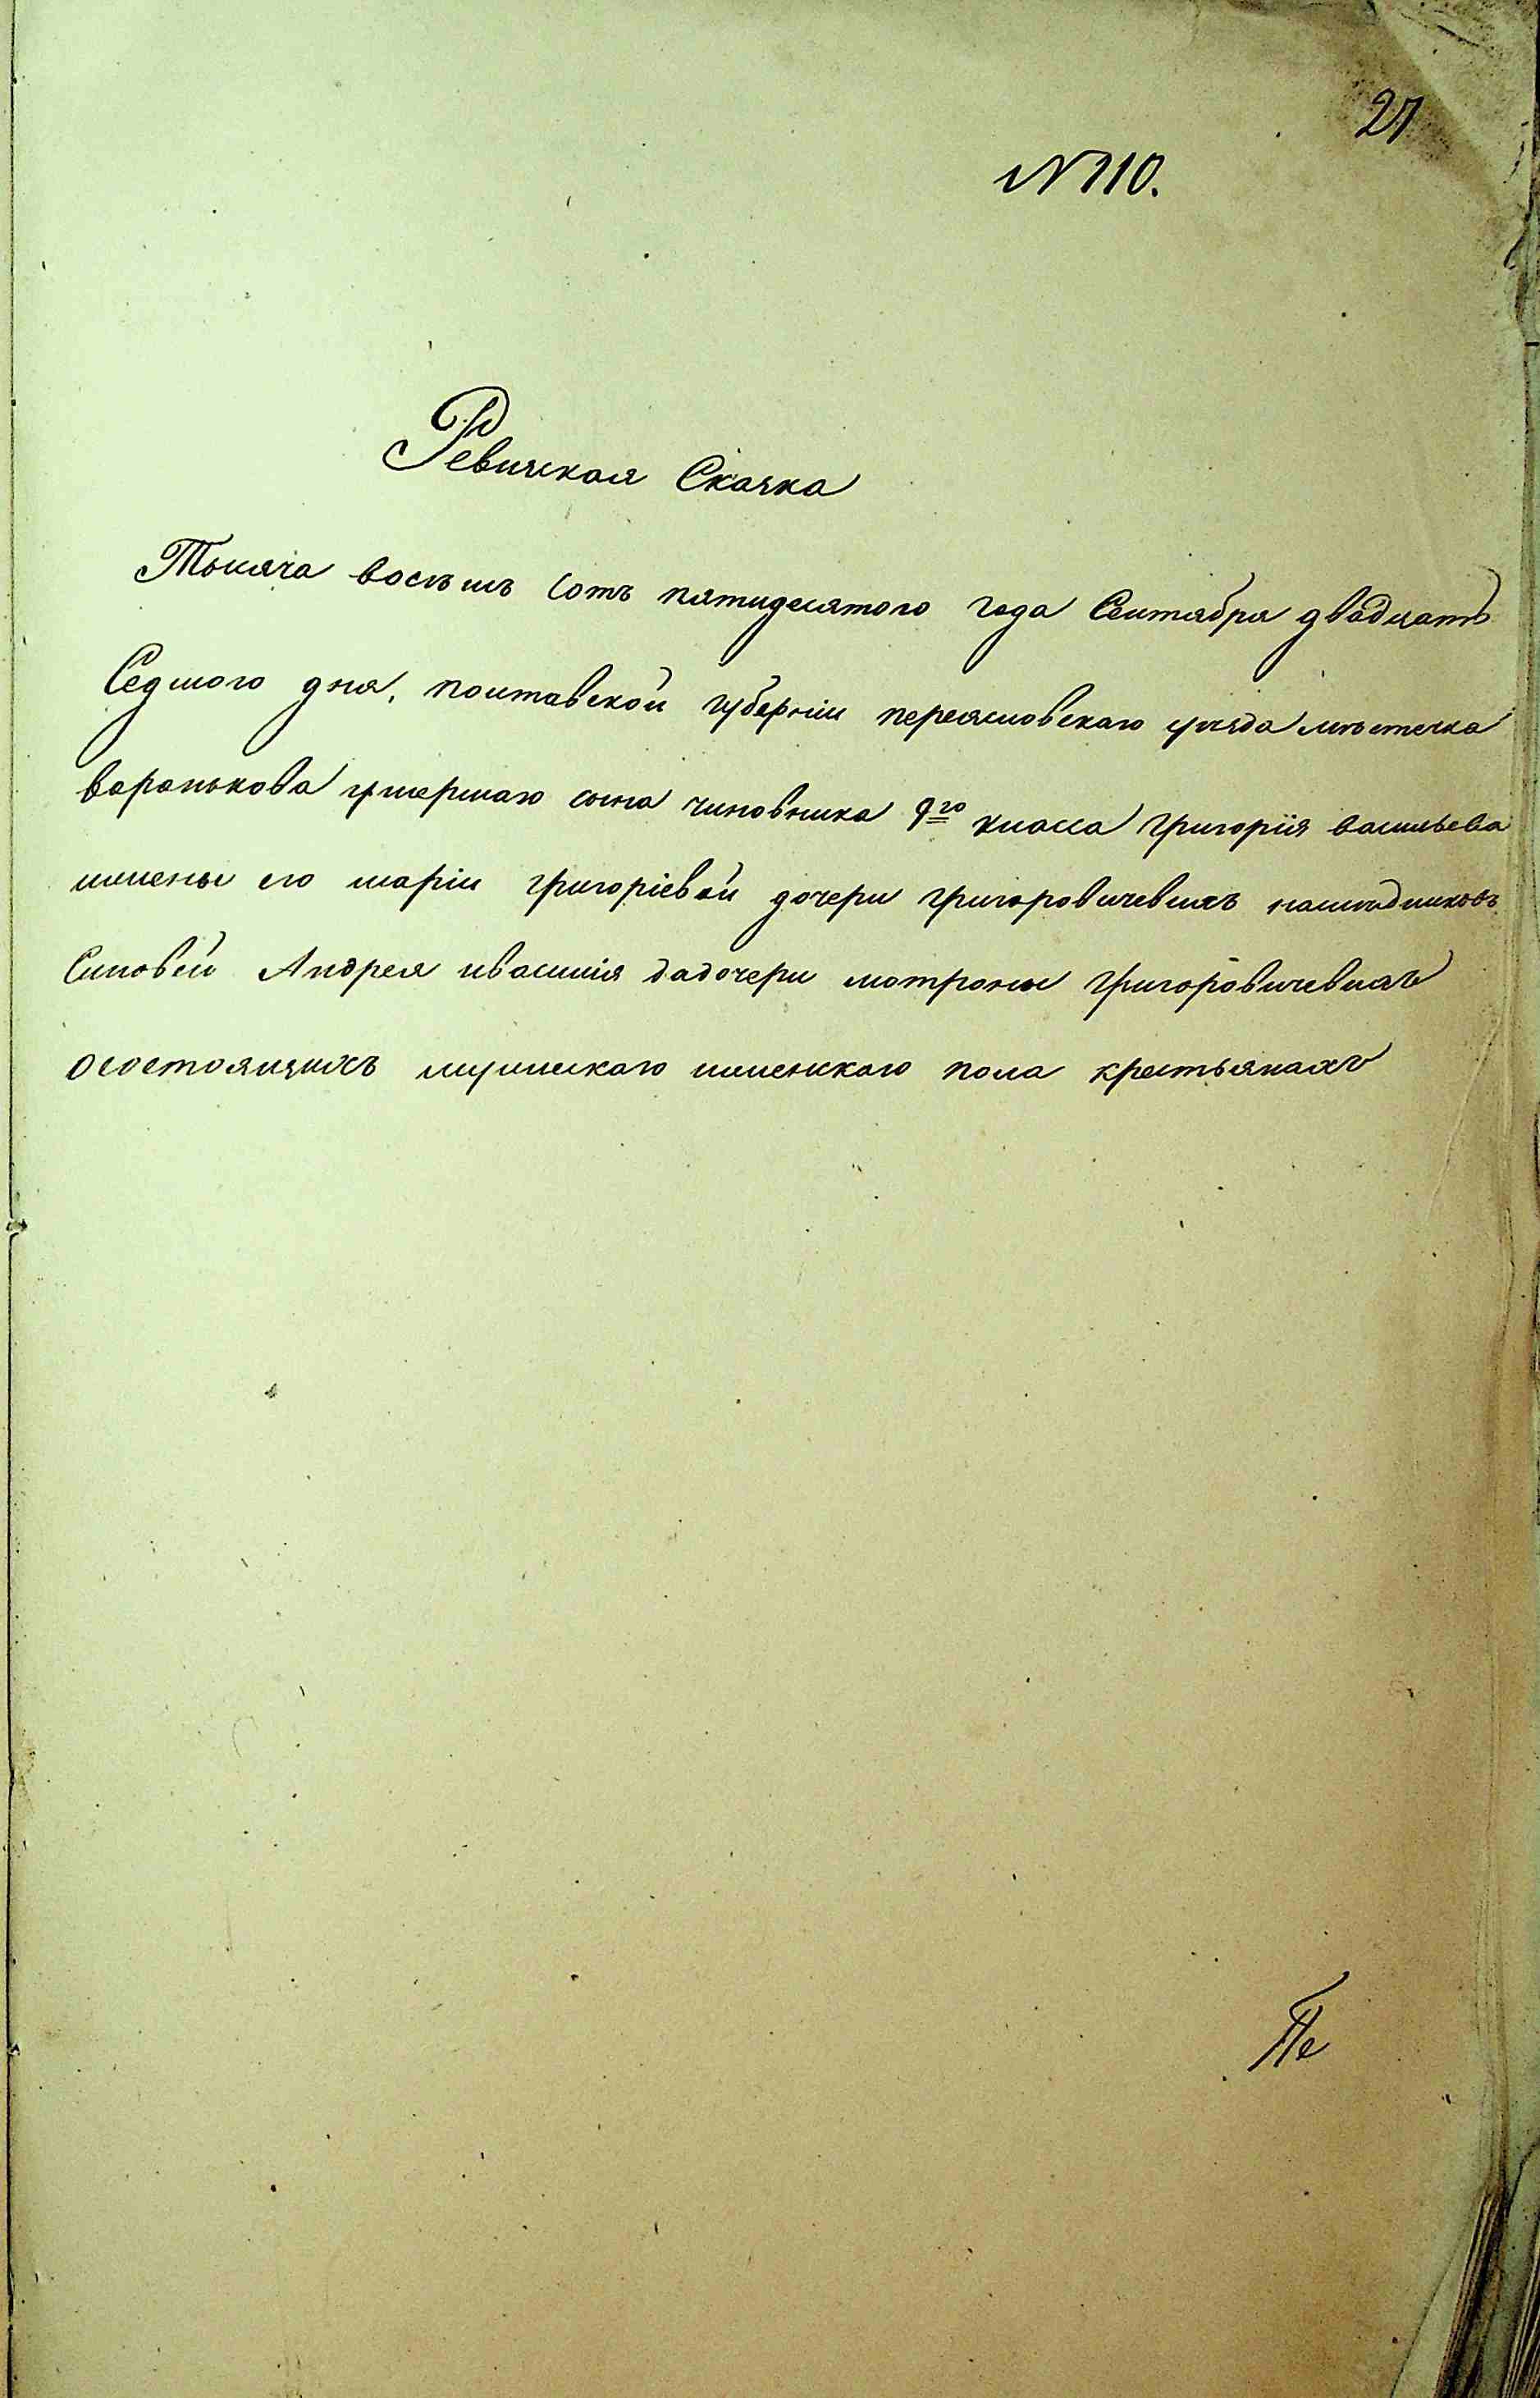 27
N 110.
Ревижская Скаска
Тысяча восъмь сотъ пятидесятого года Сентября двадцать
Седмого дня, полтавской губерніи переясловскаго уѣзда мѣстечка
воронькова умершаго сына чиновника 9го класса григорія васильева
жены его маріи григоріевой дочери григоровичевыхъ наслѣдниковъ
Синовей Андрея ивасилія дадочери мотроны григоровичевыхъ
осостоящихъ мужескаго женскаго пола крестьянахъ
Пе